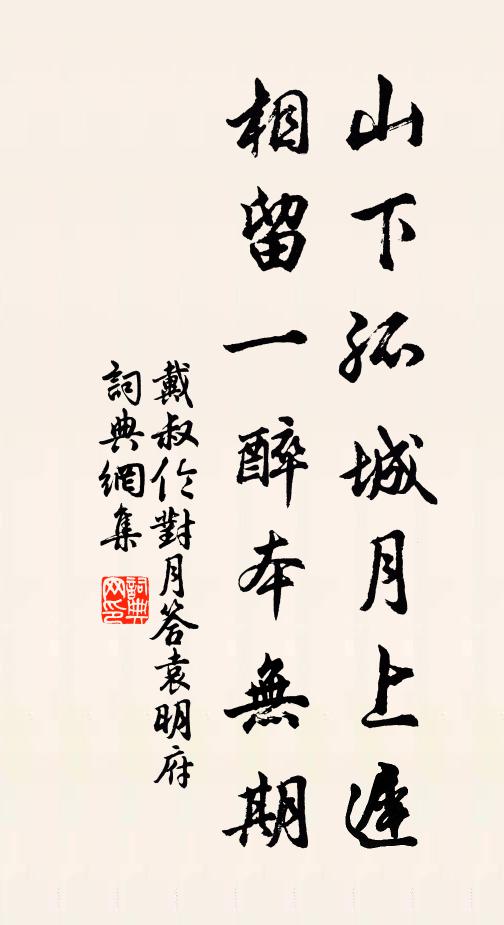 山下孤城月上遲
相留一醉本無期
戴叔伦對月答袁明府
詞典網集
詞典网印